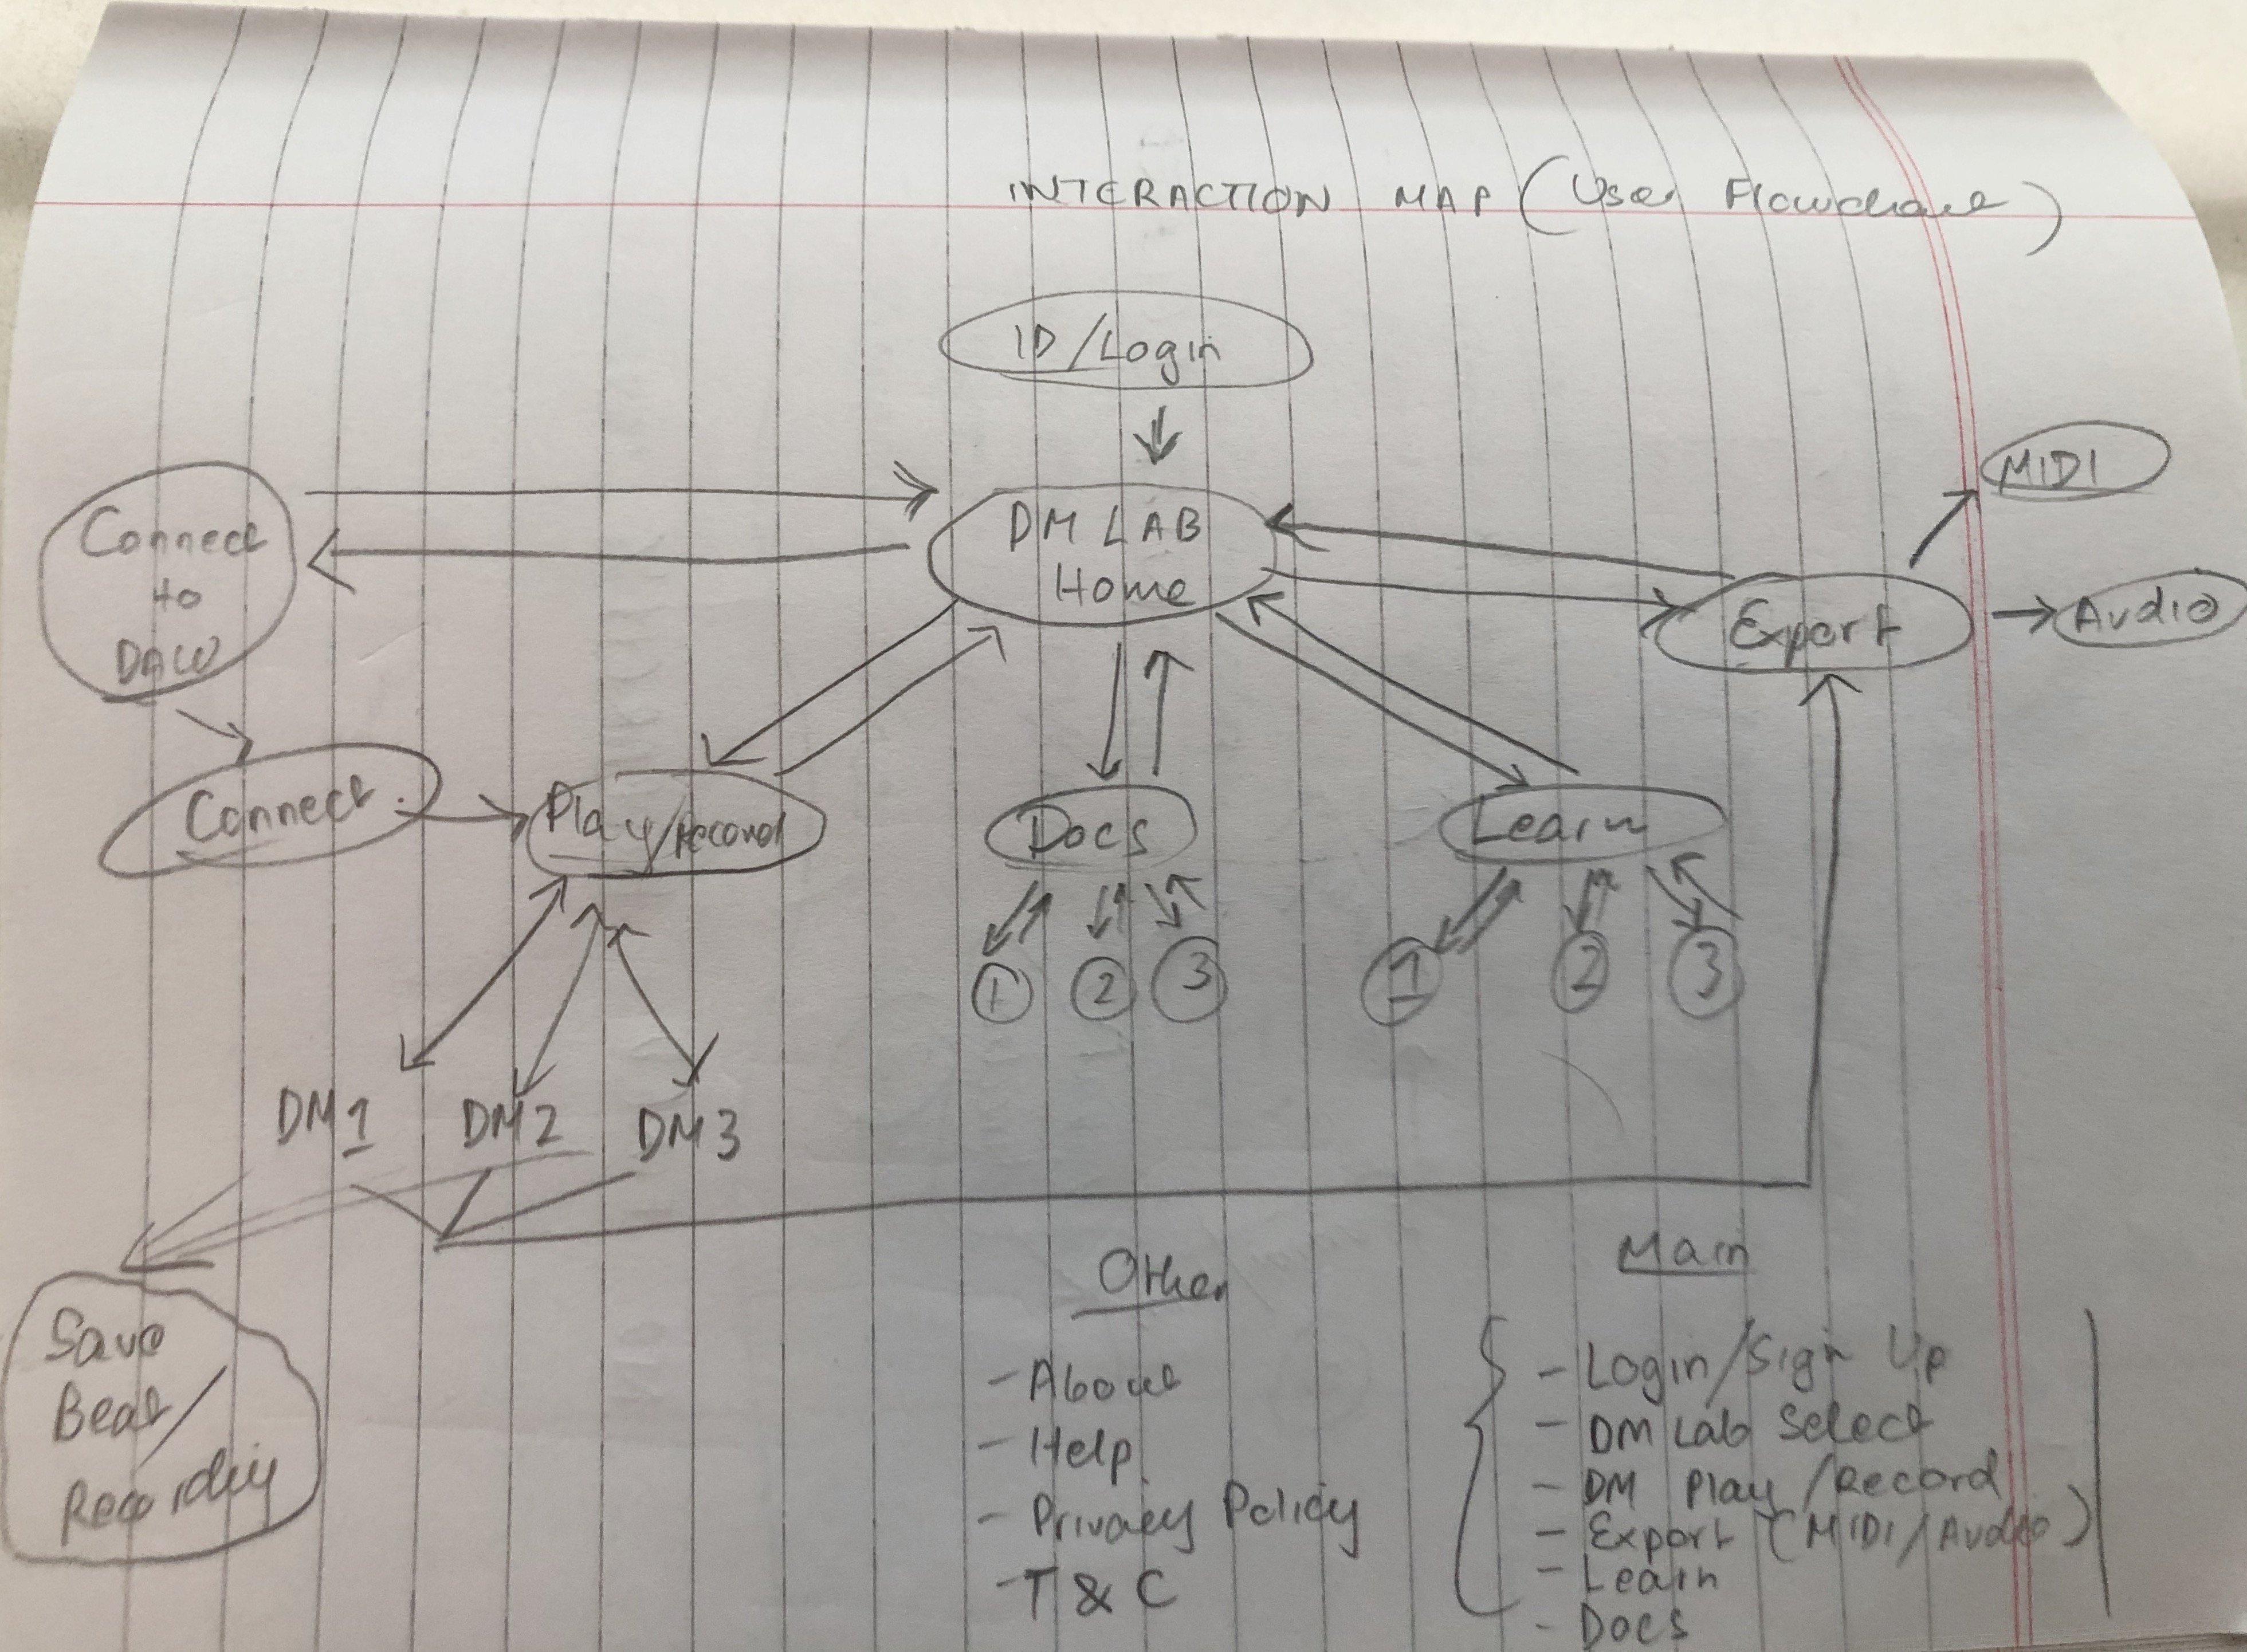 INTERACTION MAP (User Flowchart)
ID/Login
DM LAB
Home
Connect
to
DAW
MIDI
Audio
Export
Connect
Play/record
Docs
Learn
1
2
3
1
2
3
DM1
DM2
DM3
Save
Beat/
Recording
Other
- About
- Help
- Privacy Policy
- T & C
Main
- Login/Sign Up
- DM Lab Select
- DM Play/Record
- Export (MIDI/Audio)
- Learn
- Docs